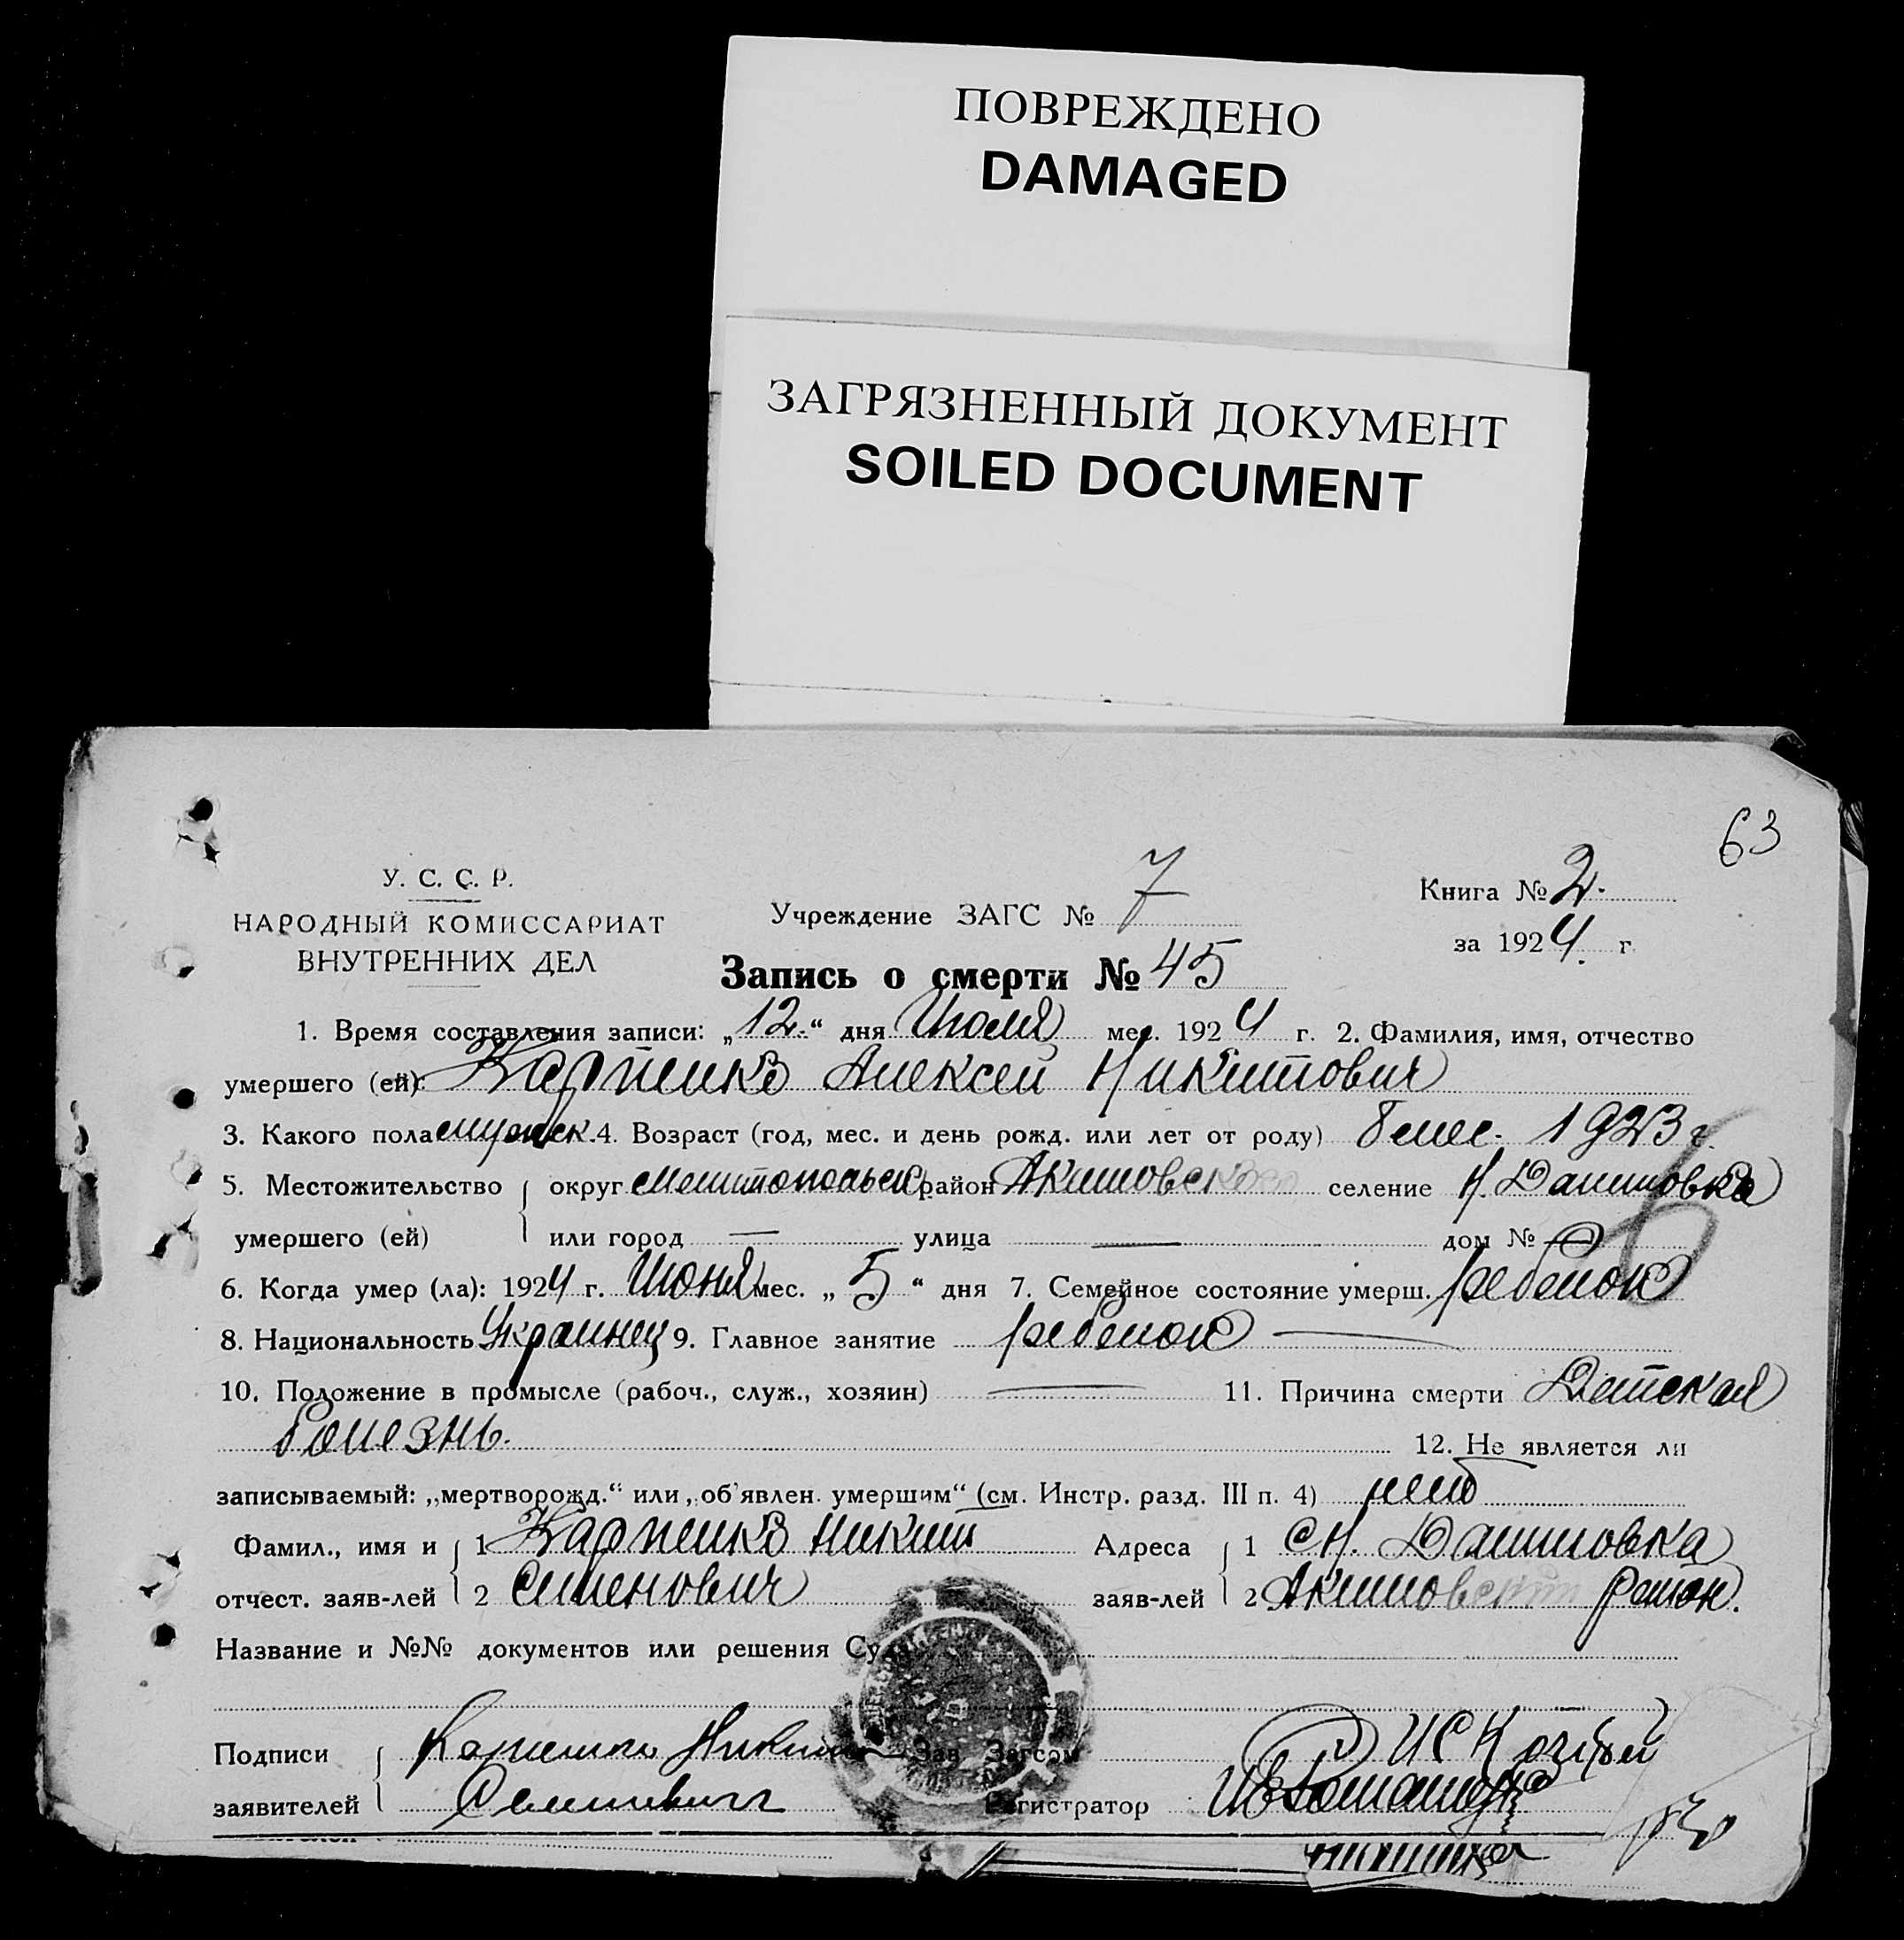 ПОВРЕЖДЕНО
DAMAGED
ЗАГРЯЗНЕННЫЙ ДОКУМЕНТ
SOILED DOCUMENT
63
У. С. С. Р.
НАРОДНЫЙ КОМИССАРИАТ
ВНУТРЕННИХ ДЕЛ
Учреждение ЗАГС № 7
Книга № 2.
за 1924. г.
Запись о смерти № 45
1. Время составления записи: „12.“ дня Июля мес. 1924 г. 2. Фамилия, имя, отчество
умершего (ей): Карпенко Алексей Никитович
3. Какого пола мужск. 4. Возраст (год, мес. и день рожд. или лет от роду) 8 мес. 1923 г.
5. Местожительство округ Мелитопольск. район Акимовского селение Н. Даниловка
умершего (ей) или город — улица — дом № —
6. Когда умер (ла): 1924 г. Июня мес. „5“ дня 7. Семейное состояние умерш. ребенок
8. Национальность Украинец 9. Главное занятие ребенок —
10. Положение в промысле (рабоч., служ., хозяин) — 11. Причина смерти Детская
болезнь. 12. Не является ли
записываемый: „мертворожд.“ или „об'явлен. умершим“ (см. Инстр. разд. III п. 4) нет
Фамил., имя и 1 Карпенко Никит Адреса 1 с Н. Даниловка
отчест. заяв-лей 2 Семенович заяв-лей 2 Акимовский район.
Название и №№ документов или решения Суда
Подписи Карпенко Никита Зав. Загсом
заявителей Семенович Регистратор